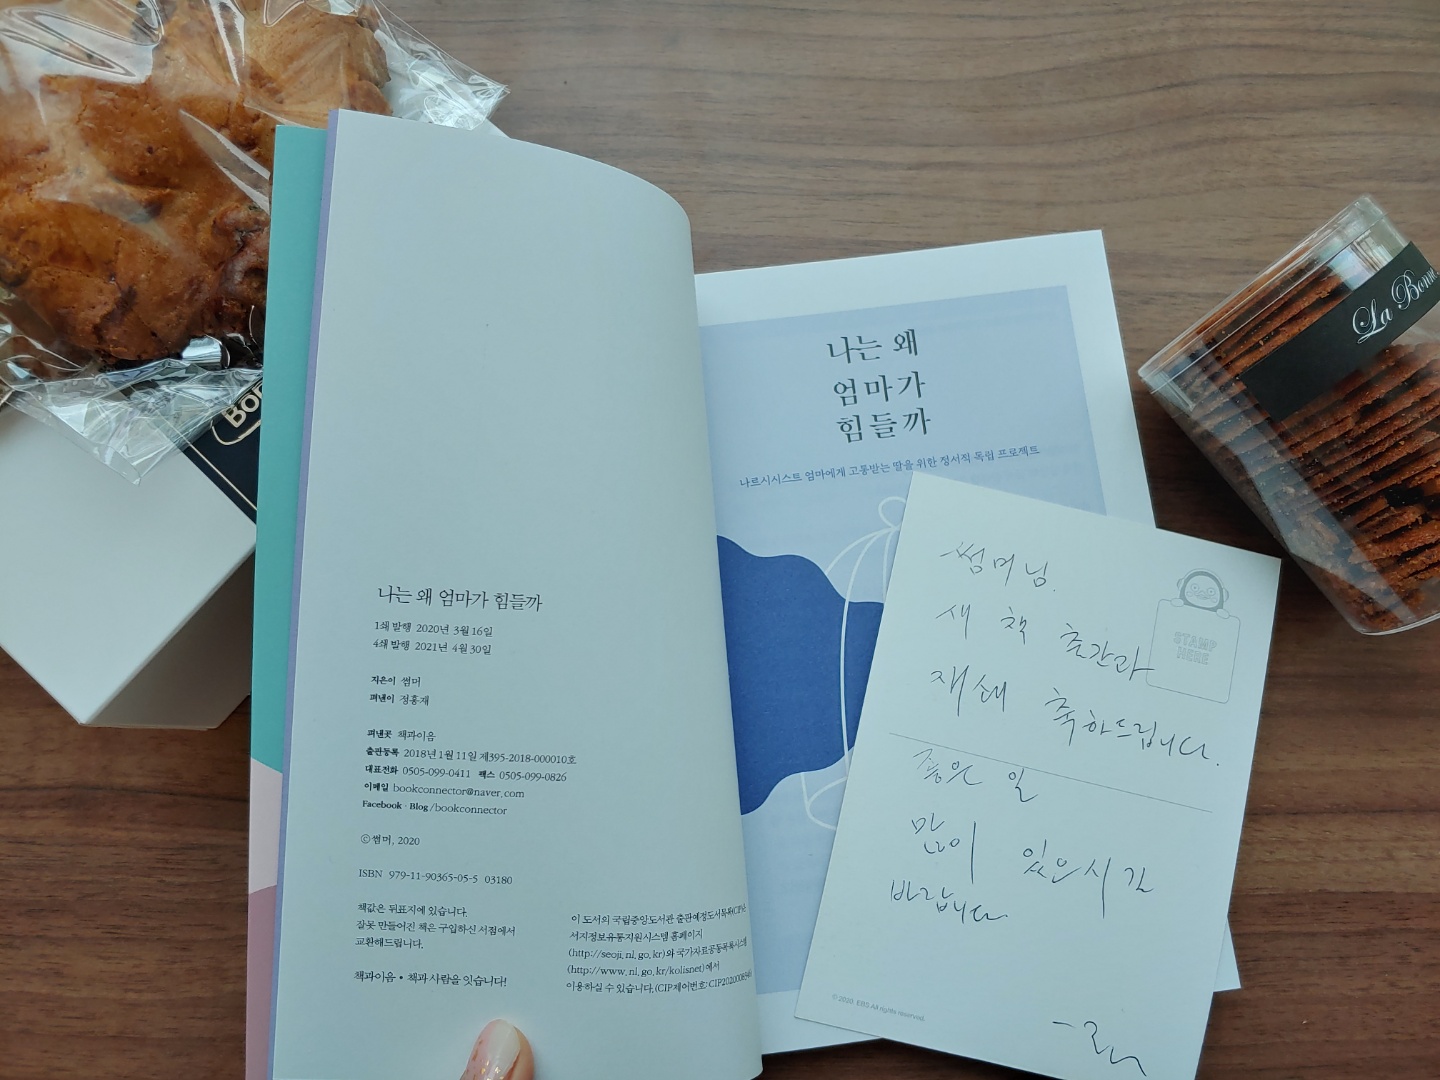 나는 왜 엄마가 힘들까
1쇄 발행 2020년 3월 16일
4쇄 발행 2021년 4월 30일
지은이 썸머
펴낸이 정흥재
펴낸곳 책과이음
출판등록 2018년 1월 11일 제395-2018-000010호
대표전화 0505-099-0411 팩스 0505-099-0826
이메일 bookconnector@naver.com
Facebook · Blog /bookconnector
ⓒ 썸머, 2020
ISBN 979-11-90365-05-5 03180
책값은 뒤표지에 있습니다.
잘못 만들어진 책은 구입하신 서점에서
교환해드립니다.
책과이음 • 책과 사람을 잇습니다!
이 도서의 국립중앙도서관 출판예정도서목록(CIP)은
서지정보유통지원시스템 홈페이지
(http://seoji.nl.go.kr)와 국가자료공동목록시스템
(http://www.nl.go.kr/kolisnet)에서
이용하실 수 있습니다.(CIP제어번호:
나는 왜
엄마가
힘들까
나르시시스트 엄마에게 고통받는 딸을 위한 정서적 독립 프로젝트
썸머님.
새 책 출간과
재쇄 축하드립니다.
좋은 일
많이 있으시길
바랍니다
STAMP
HERE
© 2020. EBS All rights reserved.
La Bonne